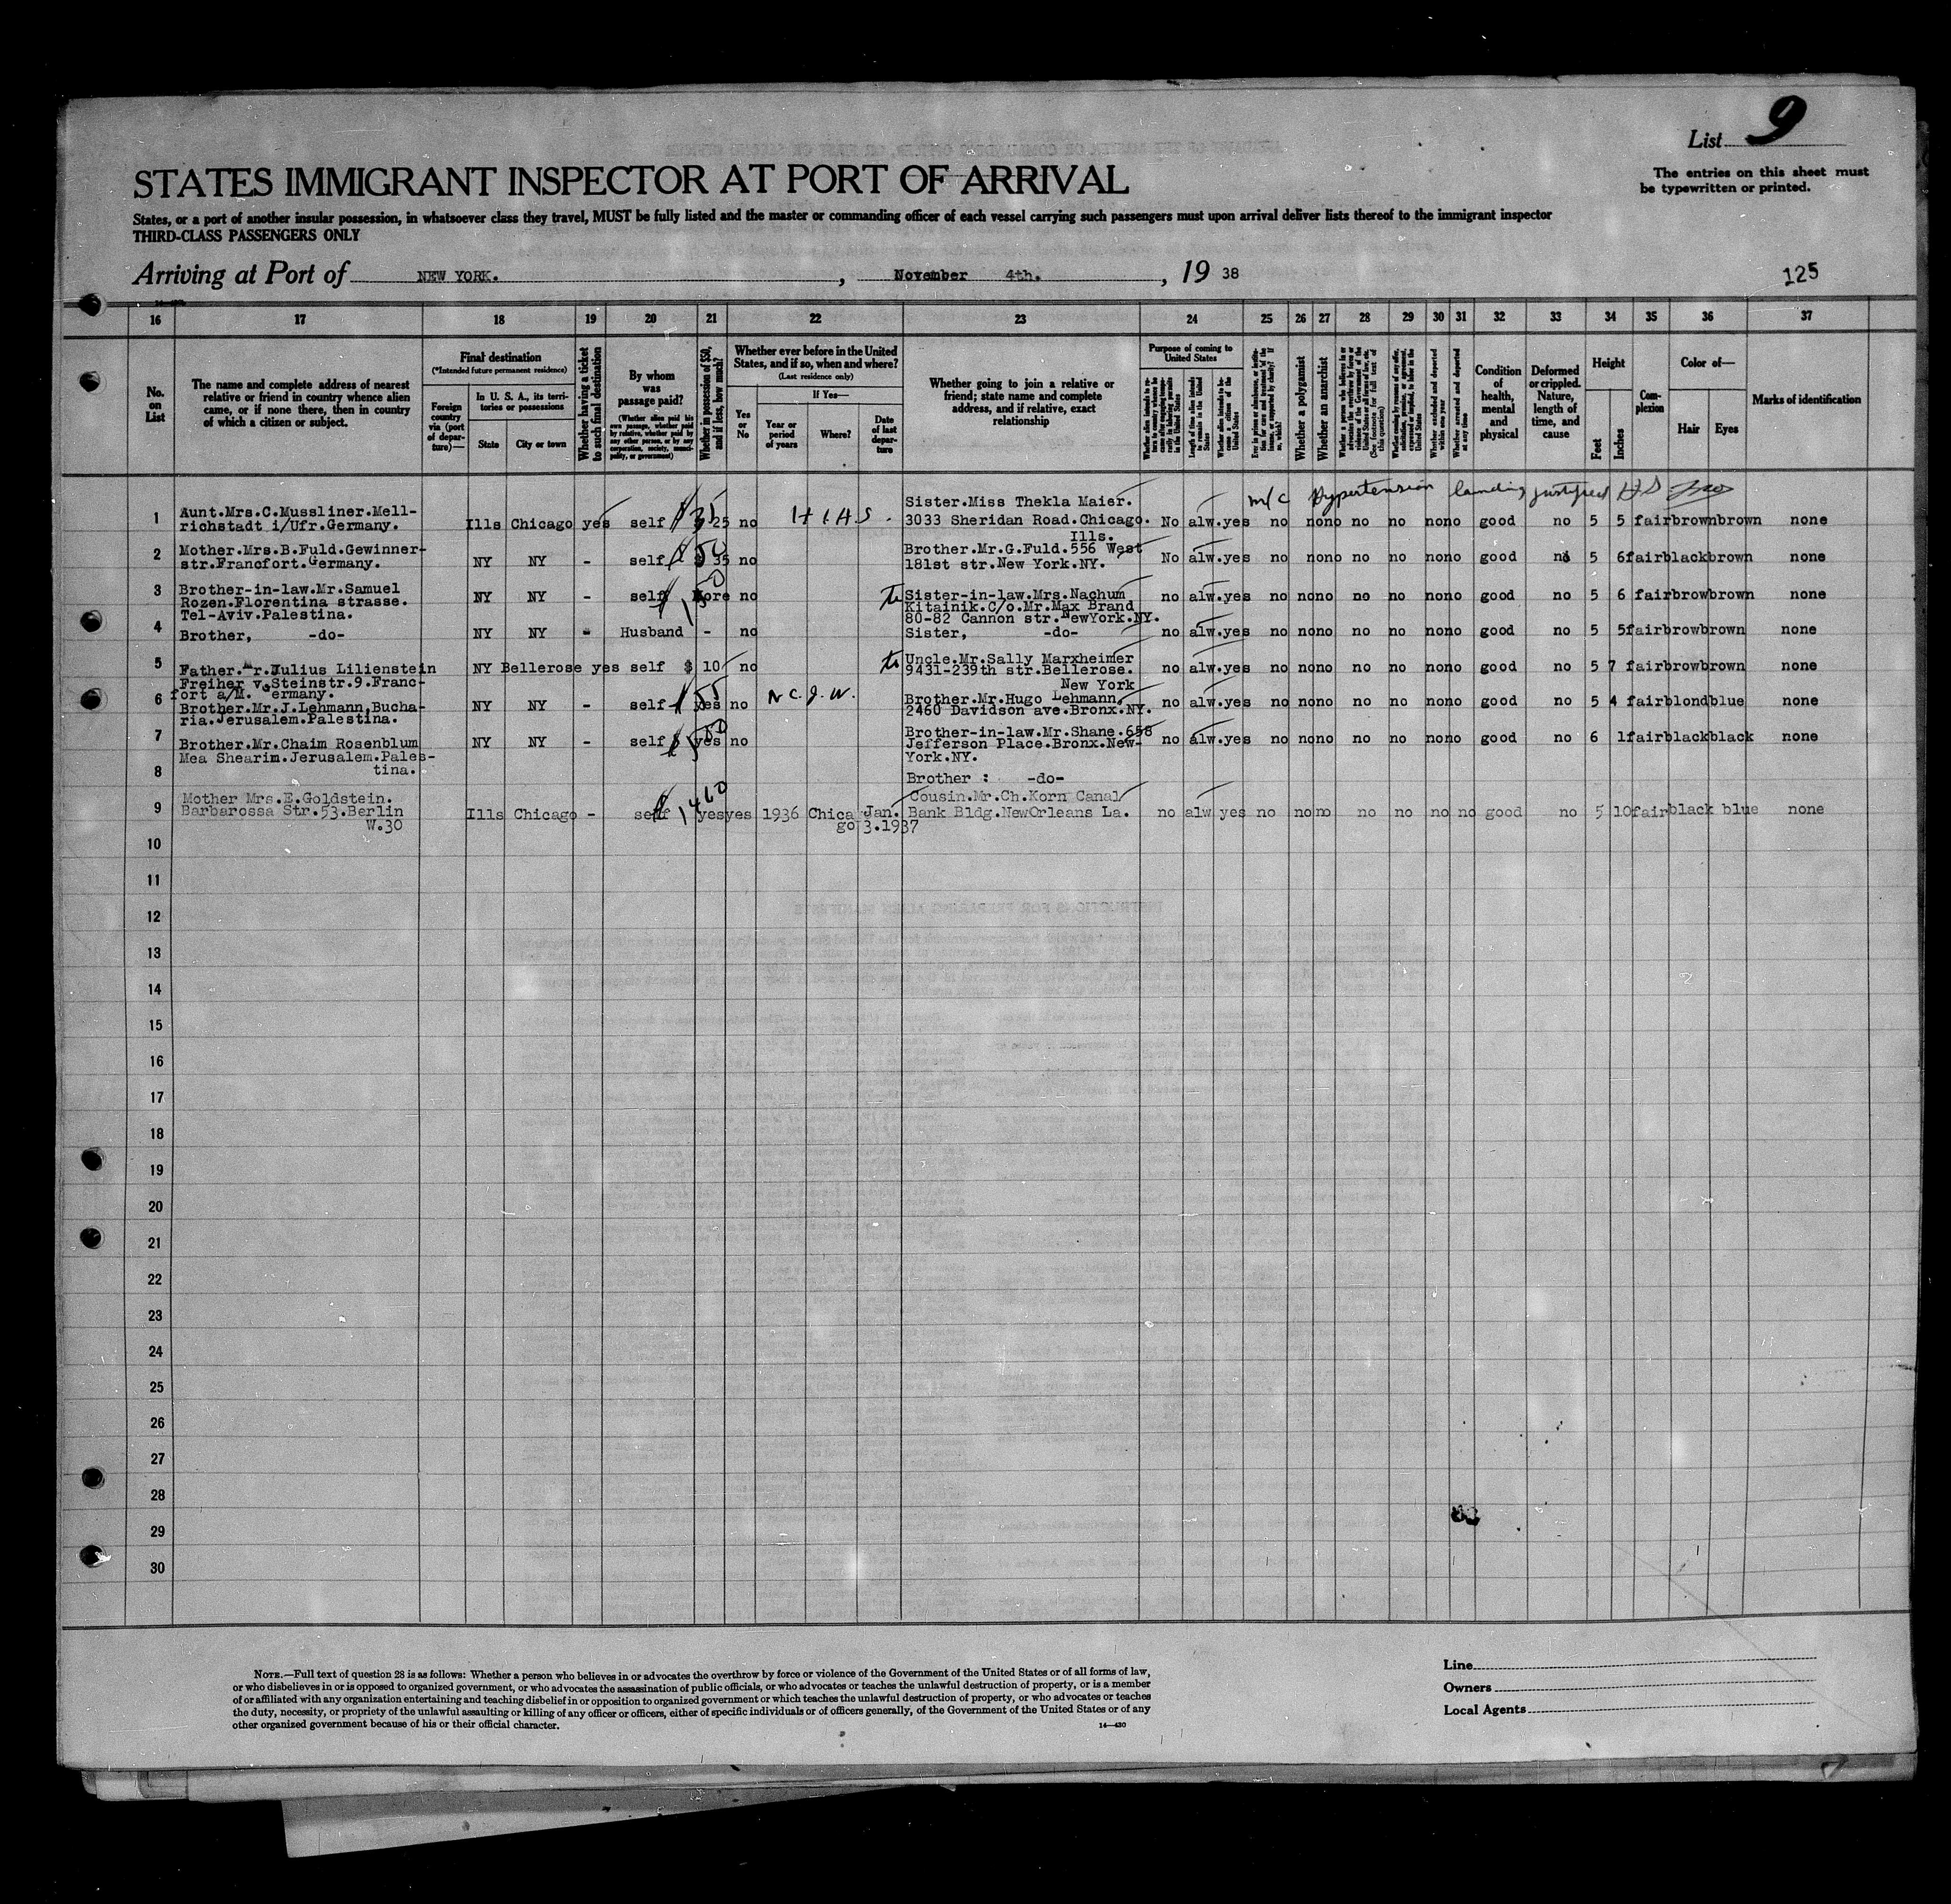 List 9
The entries on this sheet must
be typewritten or printed.
STATES IMMIGRANT INSPECTOR AT PORT OF ARRIVAL
States, or a port of another insular possession, in whatsoever class they travel, MUST be fully listed and the master or commanding officer of each vessel carrying such passengers must upon arrival deliver lists thereof to the immigrant inspector
THIRD-CLASS PASSENGERS ONLY
Arriving at Port of NEW YORK. , November 4th. , 19 38
125
16 17 18 19 20 21 22 23 24 25 26 27 28 29 30 31 32 33 34 35 36 37
No. on List
The name and complete address of nearest
relative or friend in country whence alien
came, or if none there, then in country
of which a citizen or subject.
Final destination
(*Intended future permanent residence)
Foreign country via (port of departure)—
In U. S. A., its territories or possessions
State City or town
Whether having a ticket to such final destination
By whom was passage paid?
(Whether alien paid his own passage, whether paid by relative, whether paid by any other person, or by any corporation, society, municipality, or government)
Whether in possession of $50, and if less, how much?
Whether ever before in the United
States, and if so, when and where?
(Last residence only)
Yes or No
If Yes—
Year or period of years
Where?
Date of last departure
Whether going to join a relative or
friend; state name and complete
address, and if relative, exact
relationship
Purpose of coming to United States
Length of time alien intends to remain in the United States
Whether alien intends to become a citizen of the United States
Whether a polygamist
Whether an anarchist
Whether excluded and deported within one year
Whether arrested and deported at any time
Condition of health, mental and physical
Deformed or crippled. Nature, length of time, and cause
Height
Feet Inches
Complexion
Color of—
Hair Eyes
Marks of identification
m/c Hypertension landing justified
1 Aunt.Mrs.C.Mussliner.Mell-
richstadt i/Ufr.Germany. Ills Chicago yes self $ 25 no HIAS. Sister.Miss Thekla Maier.
3033 Sheridan Road.Chicago.
Ills. No alw.yes no no no no no no no good no 5 5 fair brown brown none
2 Mother.Mrs.B.Fuld.Gewinner-
str.Francfort.Germany. NY NY - self $ 35 no Brother.Mr.G.Fuld.556 West
181st str.New York.NY. No alw.yes no no no no no no no good no 5 6 fair black brown none
3 Brother-in-law.Mr.Samuel
Rozen.Florentina strasse.
Tel-Aviv.Palestina. NY NY - self more no Sister-in-law.Mrs.Nachum
Kitainik.C/o.Mr.Max Brand
80-82 Cannon str.NewYork.NY. no alw.yes no no no no no no no good no 5 6 fair brow brown none
4 Brother, -do- NY NY - Husband - no Sister, -do- no alw.yes no no no no no no no good no 5 5 fair brow brown none
5 Father.Mr.Julius Lilienstein
Freiher v.Steinstr.9.Franc-
fort a/M. Germany. NY Bellerose yes self $ 10 no Uncle.Mr.Sally Marxheimer
9431-239th str.Bellerose.
New York no alw.yes no no no no no no no good no 5 7 fair brow brown none
6 Brother.Mr.J.Lehmann.Bucha-
ria.Jerusalem.Palestina. NY NY - self yes no N.C.J.W. Brother.Mr.Hugo Lehmann.
2460 Davidson ave.Bronx.NY. no alw.yes no no no no no no no good no 5 4 fair blond blue none
7 Brother.Mr.Chaim Rosenblum
Mea Shearim.Jerusalem.Pales-
tina. NY NY - self yes no Brother-in-law.Mr.Shane.658
Jefferson Place.Bronx.New-
York.NY. no alw.yes no no no no no no no good no 6 1 fair black black none
8 Brother : -do-
9 Mother Mrs.E.Goldstein.
Barbarossa Str.53.Berlin
W.30 Ills Chicago - self yes yes 1936 Chicago Jan.
3.1937 Cousin.Mr.Ch.Korn Canal
Bank Bldg.NewOrleans La. no alw yes no no no no no no no good no 5 10 fair black blue none
10
11
12
13
14
15
16
17
18
19
20
21
22
23
24
25
26
27
28
29
30
NOTE.—Full text of question 28 is as follows: Whether a person who believes in or advocates the overthrow by force or violence of the Government of the United States or of all forms of law,
or who disbelieves in or is opposed to organized government, or who advocates the assassination of public officials, or who advocates or teaches the unlawful destruction of property, or is a member
of or affiliated with any organization entertaining and teaching disbelief in or opposition to organized government or which teaches the unlawful destruction of property, or who advocates or teaches
the duty, necessity, or propriety of the unlawful assaulting or killing of any officer or officers, either of specific individuals or of officers generally, of the Government of the United States or of any
other organized government because of his or their official character.
14—430
Line
Owners
Local Agents